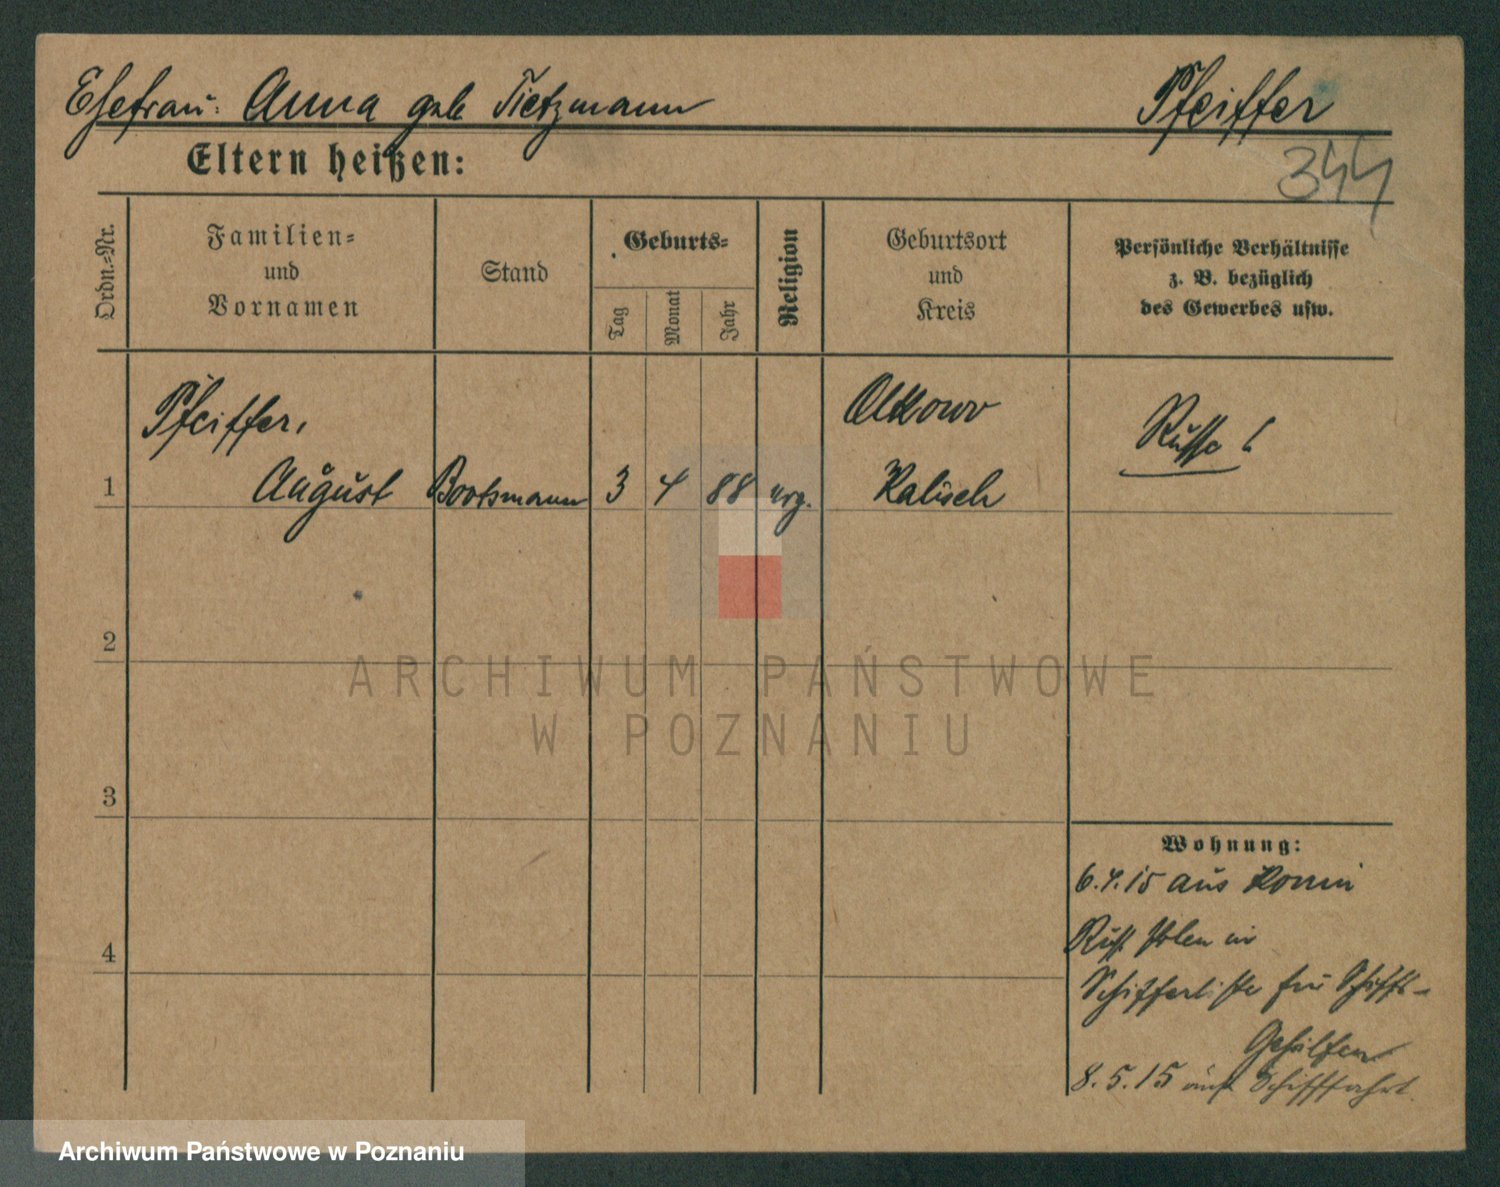 Ehefrau: Anna geb. Tietzmann
Pfeiffer
344
Eltern heißen:
Ordn.-Nr.
Familien-
und
Vornamen
Stand
Geburts-
Tag
Monat
Jahr
Religion
Geburtsort
und
Kreis
Persönliche Verhältnisse
z. B. bezüglich
des Gewerbes usw.
Pfeiffer,
August
Bootsmann
3
4
88
Kalisch
Russe!
1
2
3
4
Wohnung:
6.4.15 aus
Russ. Polen in
Schifferliste für Schiffs-
Gehilfen
8.5.15 auf Schifffahrt.
ARCHIWUM PAŃSTWOWE
W POZNANIU
Archiwum Państwowe w Poznaniu